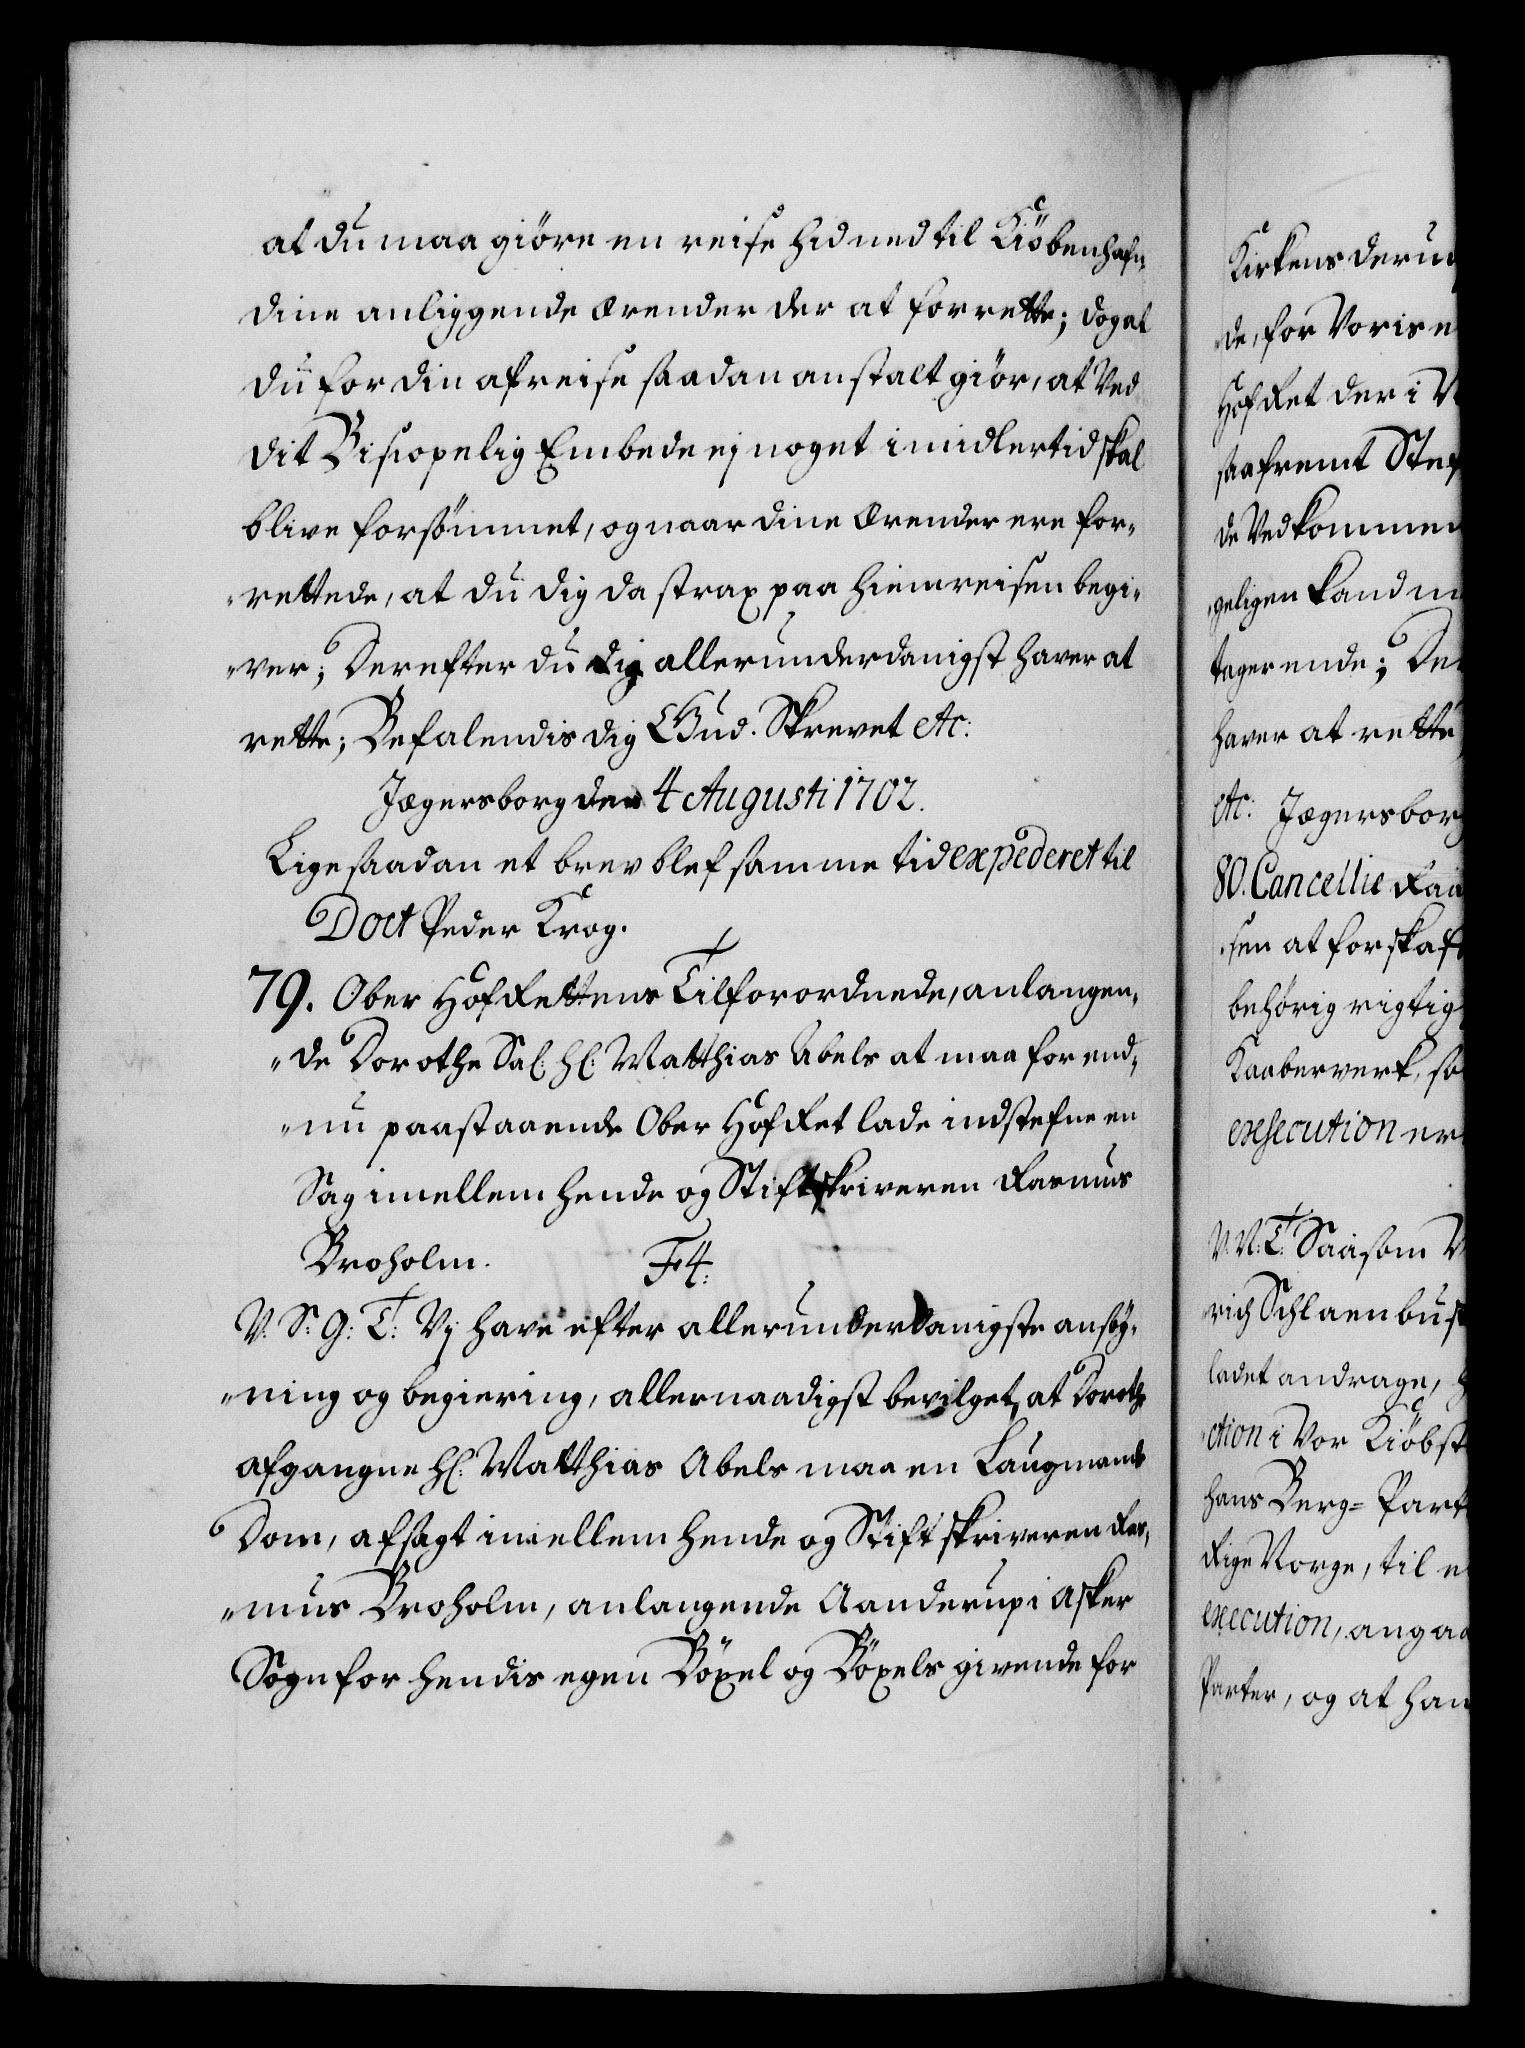 at du maa giöre en reise hid ned til Kiöbenhafn,
dine anliggende ærender der at forrette; dog at
du for din afreise saadan anstalt giör, at Ved
dit Bisiopelig Embede ej noget imidlertid skal
blive forsömmet, og naar dine Ærender ere for-
rettede, at du dig da strax paa hiemreisen begi-
ver; Derefter du dig allerunderdanigst haver at
rette; Befalendis dig Gud. Skrevet etc:
Jægersborg den 4 Augusti 1702.
Lige saadan et brev blef samme tid expederet til
Doct Peder Krog.
79. Ober Hof Rettens Tilforordnede, anlangen-
de Dorothe Sal: Hl: Matthias Abels at maa for end-
nu paastaaende Ober Hof Ret lade indstefne en
Sag imellem hende og Stiftskriveren Rasmus
Broholm. F4:
V. S: G: T: Vj have efter allerunderdanigste ansög-
ning og begiering, allernaadigst bevilget, at Dorothe
afgangne Hl: Matthias Abels maa en Laugmands
Dom, afsagt imellem hende og Stiftskriveren Ras-
mus Broholm, anlangende Aanderup i Asker
Sogn for hendis egen Böxel og Böxels givende for
Kirkens derud
de, for Voris
Hof Ret der i
saafremt Stef
de Vedkommen
geligen kand
tager ende; De
haver at rette
etc: Jægersborg
80. Cancellie Raa
sen at forskaf
behörig rigtig
Kaaberverk, so
exsecution er
V. V: T: Saasom V
rich Schlaenbusk
ladet andrage, h
ction i Vor Kiöbst
hans Berg- Part
Rige Norge, til
execution, angaa
Parter, og at han